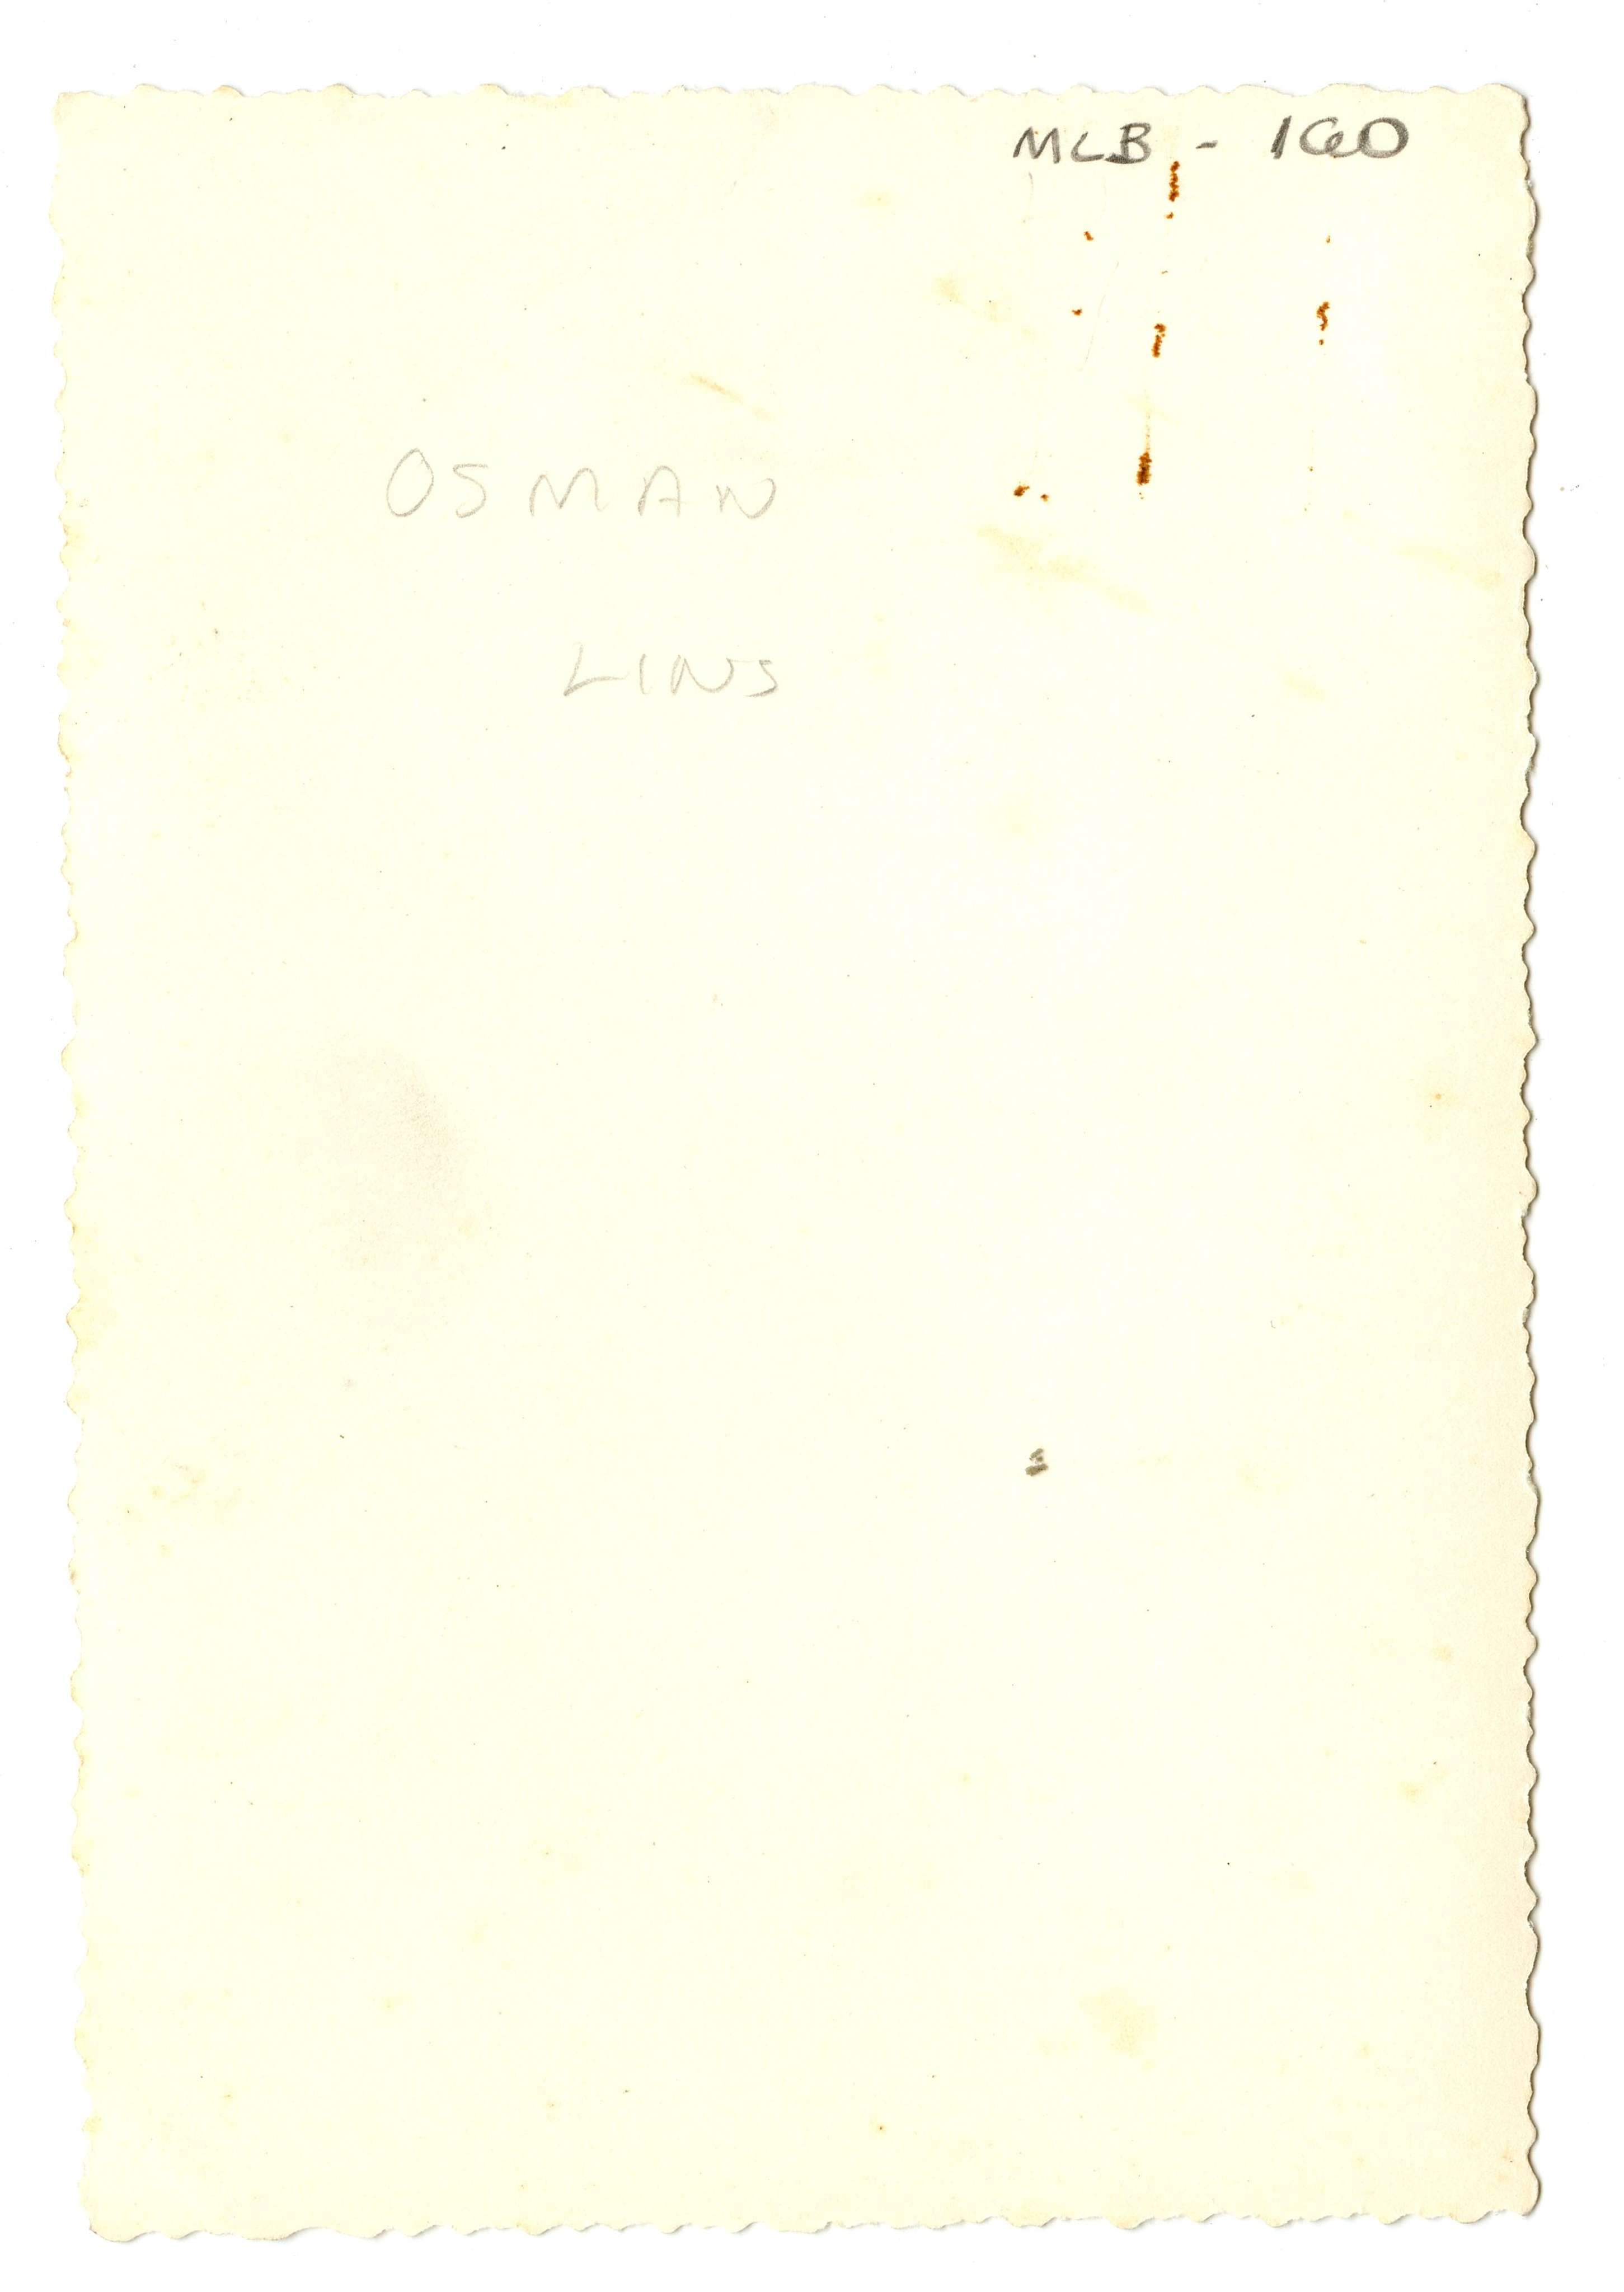 MLB - 160
OSMAN
LINS